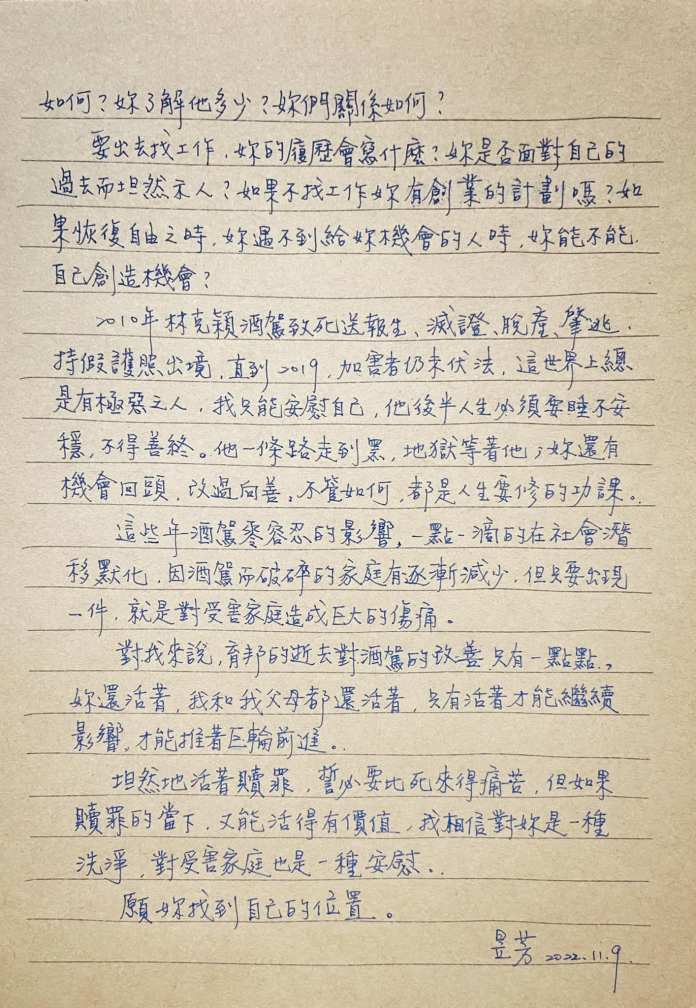 如何？妳了解他多少？妳們關係如何？
要出去找工作，妳的履歷會寫什麼？妳是否面對自己的
過去而坦然示人？如果不找工作妳有創業的計劃嗎？如
果恢復自由之時，妳遇不到給妳機會的人時，妳能不能
自己創造機會？
2010年林克穎酒駕致死送報生、滅證、脫產、肇逃、
持假護照出境，直到2019，加害者仍未伏法，這世界上總
是有極惡之人，我只能安慰自己，他後半人生必須要睡不安
穩，不得善終。他一條路走到黑，地獄等著他；妳還有
機會回頭，改過向善。不管如何，都是人生要修的功課。
這些年酒駕零容忍的影響，一點一滴的在社會潛
移默化，因酒駕而破碎的家庭有逐漸減少，但只要出現
一件，就是對受害家庭造成巨大的傷痛。
對我來說，育邦的逝去對酒駕的改善只有一點點，
妳還活著，我和我父母都還活著，只有活著才能繼續
影響，才能推著巨輪前進。
坦然地活著贖罪，誓必要比死來得痛苦，但如果
贖罪的當下，又能活得有價值，我相信對妳是一種
洗淨，對受害家庭也是一種安慰。
願妳找到自己的位置。
昱芳 2022.11.9.